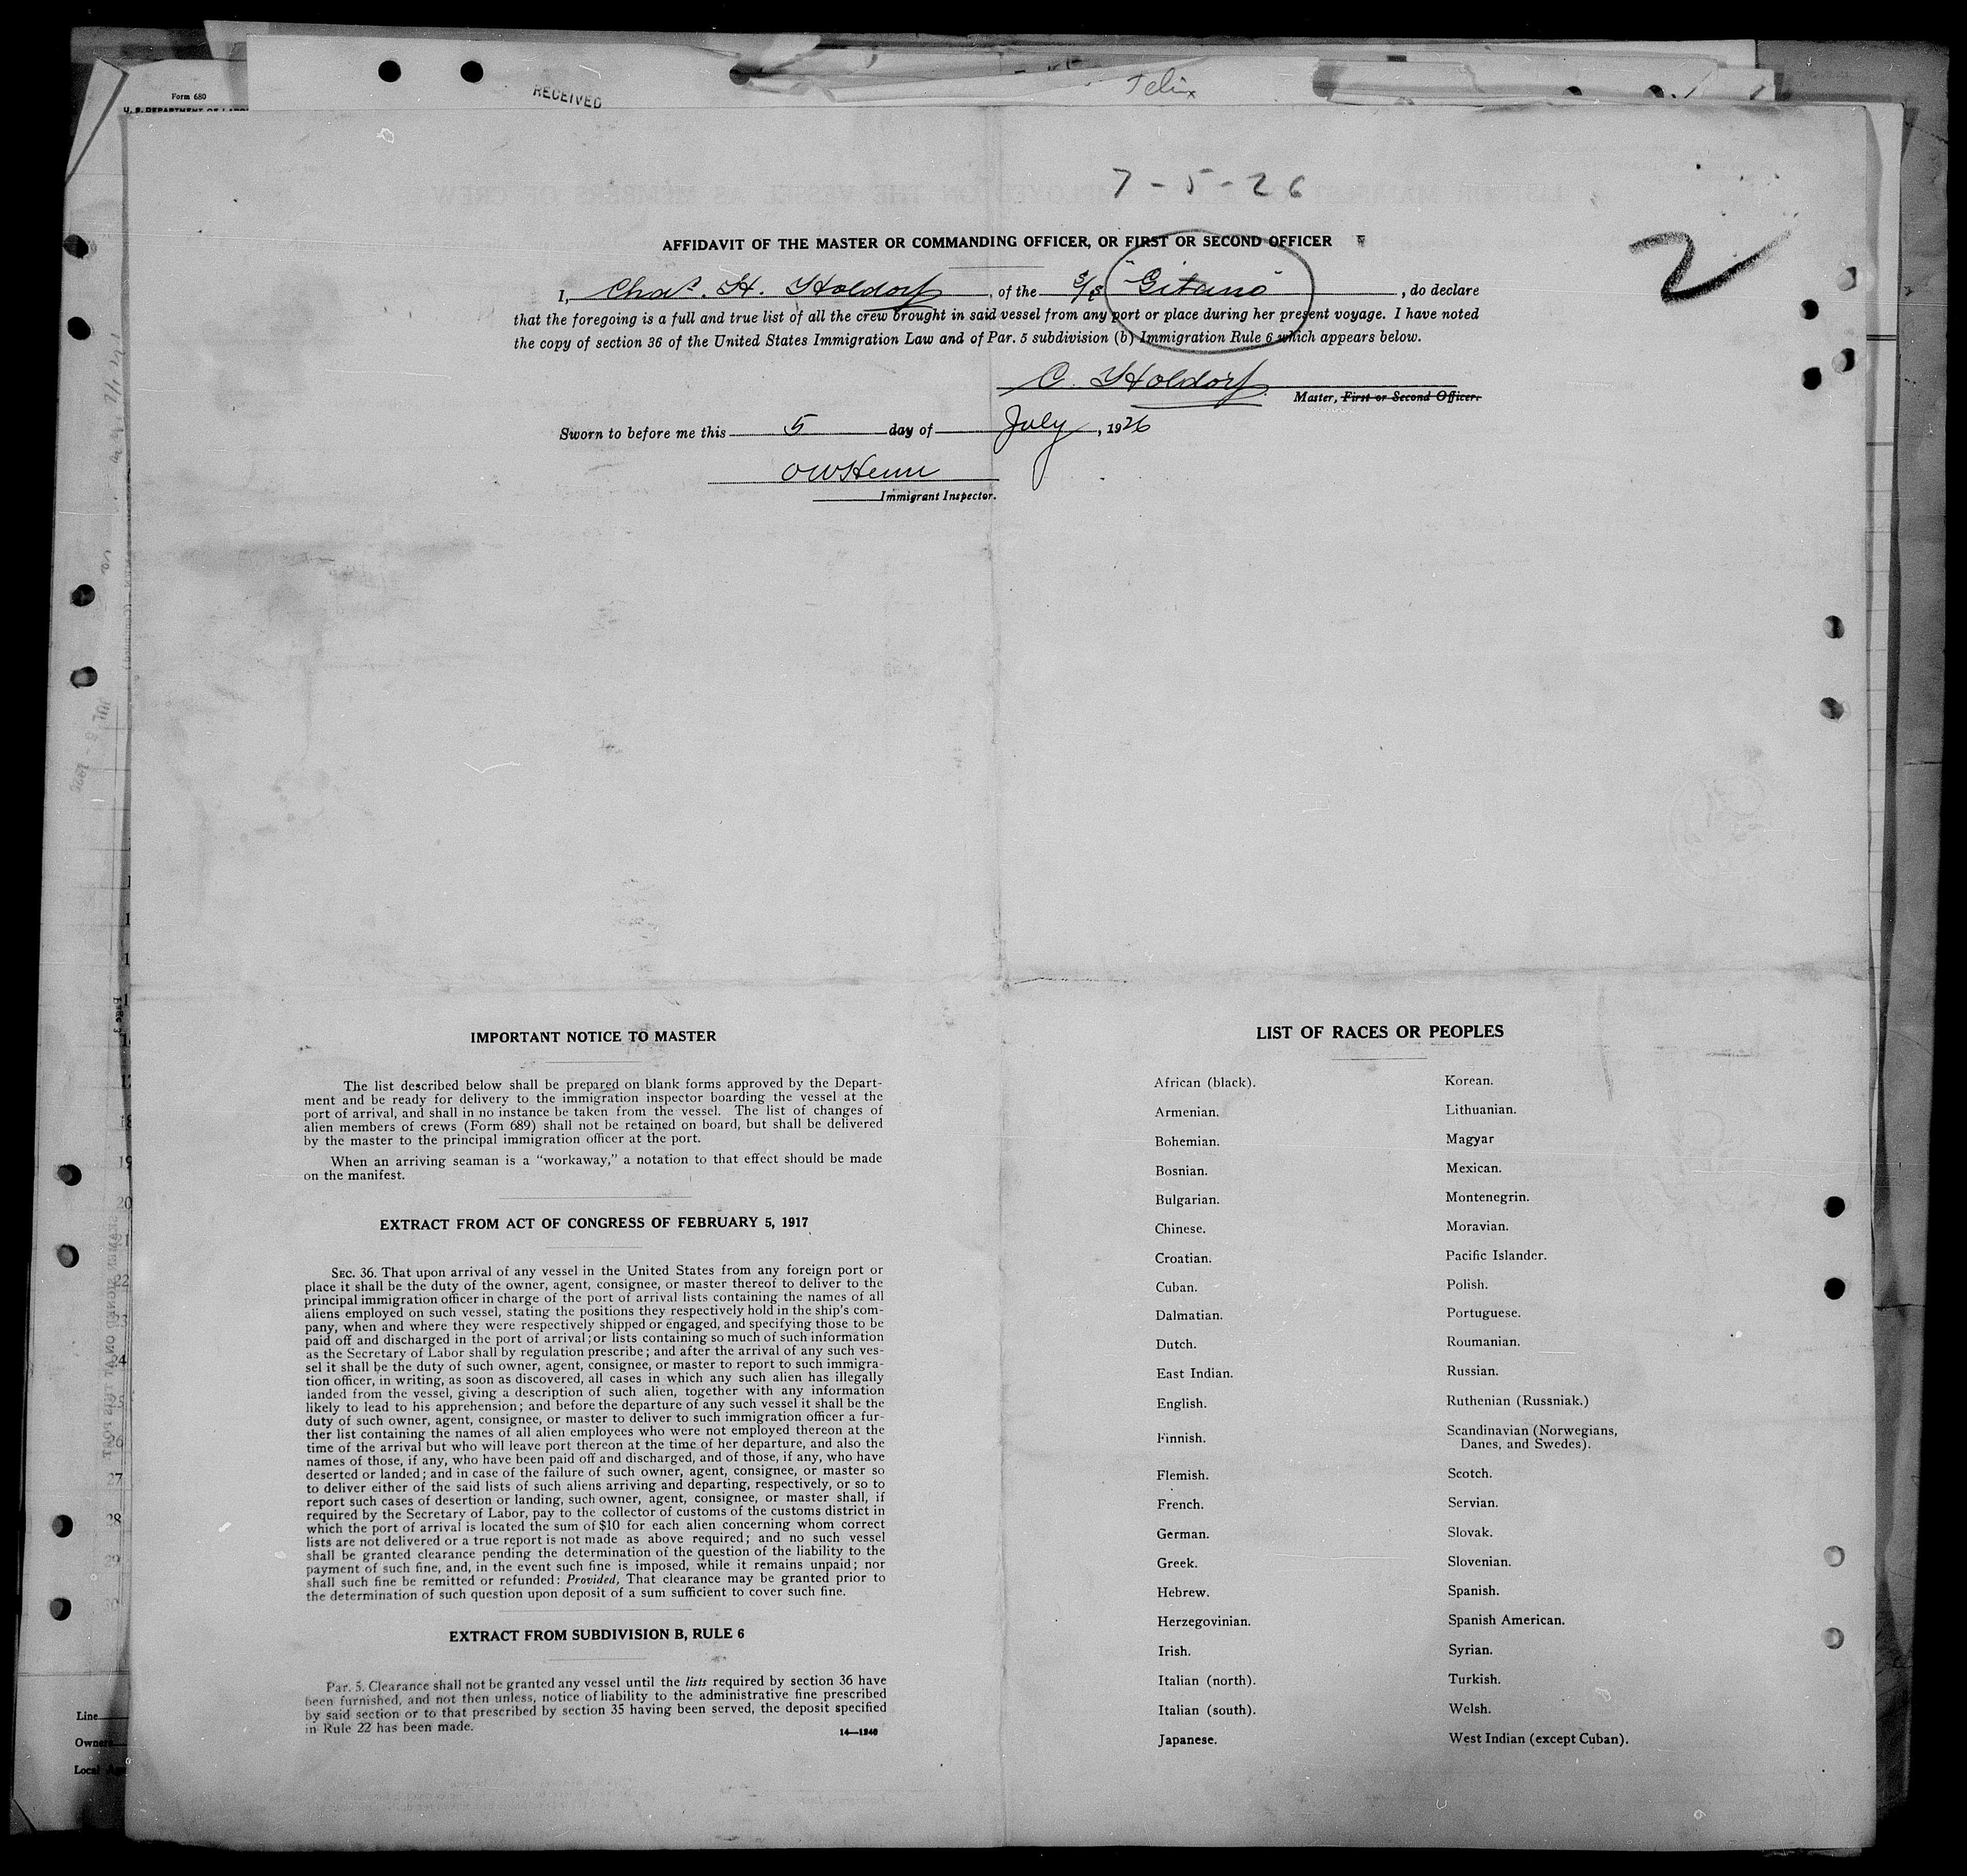 Form 680
U. S. DEPARTMENT OF LABOR
RECEIVED
Felix
7-5-26
2
AFFIDAVIT OF THE MASTER OR COMMANDING OFFICER, OR FIRST OR SECOND OFFICER
I, Chas. H. Holdorf, of the S/S "Gitano", do declare
that the foregoing is a full and true list of all the crew brought in said vessel from any port or place during her present voyage. I have noted
the copy of section 36 of the United States Immigration Law and of Par. 5 subdivision (b) Immigration Rule 6 which appears below.
C. Holdorf
Master, First or Second Officer.
Sworn to before me this 5 day of July, 1926
Immigrant Inspector.
IMPORTANT NOTICE TO MASTER
The list described below shall be prepared on blank forms approved by the Depart-
ment and be ready for delivery to the immigration inspector boarding the vessel at the
port of arrival, and shall in no instance be taken from the vessel. The list of changes of
alien members of crews (Form 689) shall not be retained on board, but shall be delivered
by the master to the principal immigration officer at the port.
When an arriving seaman is a "workaway," a notation to that effect should be made
on the manifest.
EXTRACT FROM ACT OF CONGRESS OF FEBRUARY 5, 1917
SEC. 36. That upon arrival of any vessel in the United States from any foreign port or
place it shall be the duty of the owner, agent, consignee, or master thereof to deliver to the
principal immigration officer in charge of the port of arrival lists containing the names of all
aliens employed on such vessel, stating the positions they respectively hold in the ship's com-
pany, when and where they were respectively shipped or engaged, and specifying those to be
paid off and discharged in the port of arrival; or lists containing so much of such information
as the Secretary of Labor shall by regulation prescribe; and after the arrival of any such ves-
sel it shall be the duty of such owner, agent, consignee, or master to report to such immigra-
tion officer, in writing, as soon as discovered, all cases in which any such alien has illegally
landed from the vessel, giving a description of such alien, together with any information
likely to lead to his apprehension; and before the departure of any such vessel it shall be the
duty of such owner, agent, consignee, or master to deliver to such immigration officer a fur-
ther list containing the names of all alien employees who were not employed thereon at the
time of the arrival but who will leave port thereon at the time of her departure, and also the
names of those, if any, who have been paid off and discharged, and of those, if any, who have
deserted or landed; and in case of the failure of such owner, agent, consignee, or master so
to deliver either of the said lists of such aliens arriving and departing, respectively, or so to
report such cases of desertion or landing, such owner, agent, consignee, or master shall, if
required by the Secretary of Labor, pay to the collector of customs of the customs district in
which the port of arrival is located the sum of $10 for each alien concerning whom correct
lists are not delivered or a true report is not made as above required; and no such vessel
shall be granted clearance pending the determination of the question of the liability to the
payment of such fine, and, in the event such fine is imposed, while it remains unpaid; nor
shall such fine be remitted or refunded: Provided, That clearance may be granted prior to
the determination of such question upon deposit of a sum sufficient to cover such fine.
EXTRACT FROM SUBDIVISION B, RULE 6
Par. 5. Clearance shall not be granted any vessel until the lists required by section 36 have
been furnished, and not then unless, notice of liability to the administrative fine prescribed
by said section or to that prescribed by section 35 having been served, the deposit specified
in Rule 22 has been made.
14—1240
LIST OF RACES OR PEOPLES
African (black).
Armenian.
Bohemian.
Bosnian.
Bulgarian.
Chinese.
Croatian.
Cuban.
Dalmatian.
Dutch.
East Indian.
English.
Finnish.
Flemish.
French.
German.
Greek.
Hebrew.
Herzegovinian.
Irish.
Italian (north).
Italian (south).
Japanese.
Korean.
Lithuanian.
Magyar
Mexican.
Montenegrin.
Moravian.
Pacific Islander.
Polish.
Portuguese.
Roumanian.
Russian.
Ruthenian (Russniak.)
Scandinavian (Norwegians,
Danes, and Swedes).
Scotch.
Servian.
Slovak.
Slovenian.
Spanish.
Spanish American.
Syrian.
Turkish.
Welsh.
West Indian (except Cuban).
Line
Owners
Local